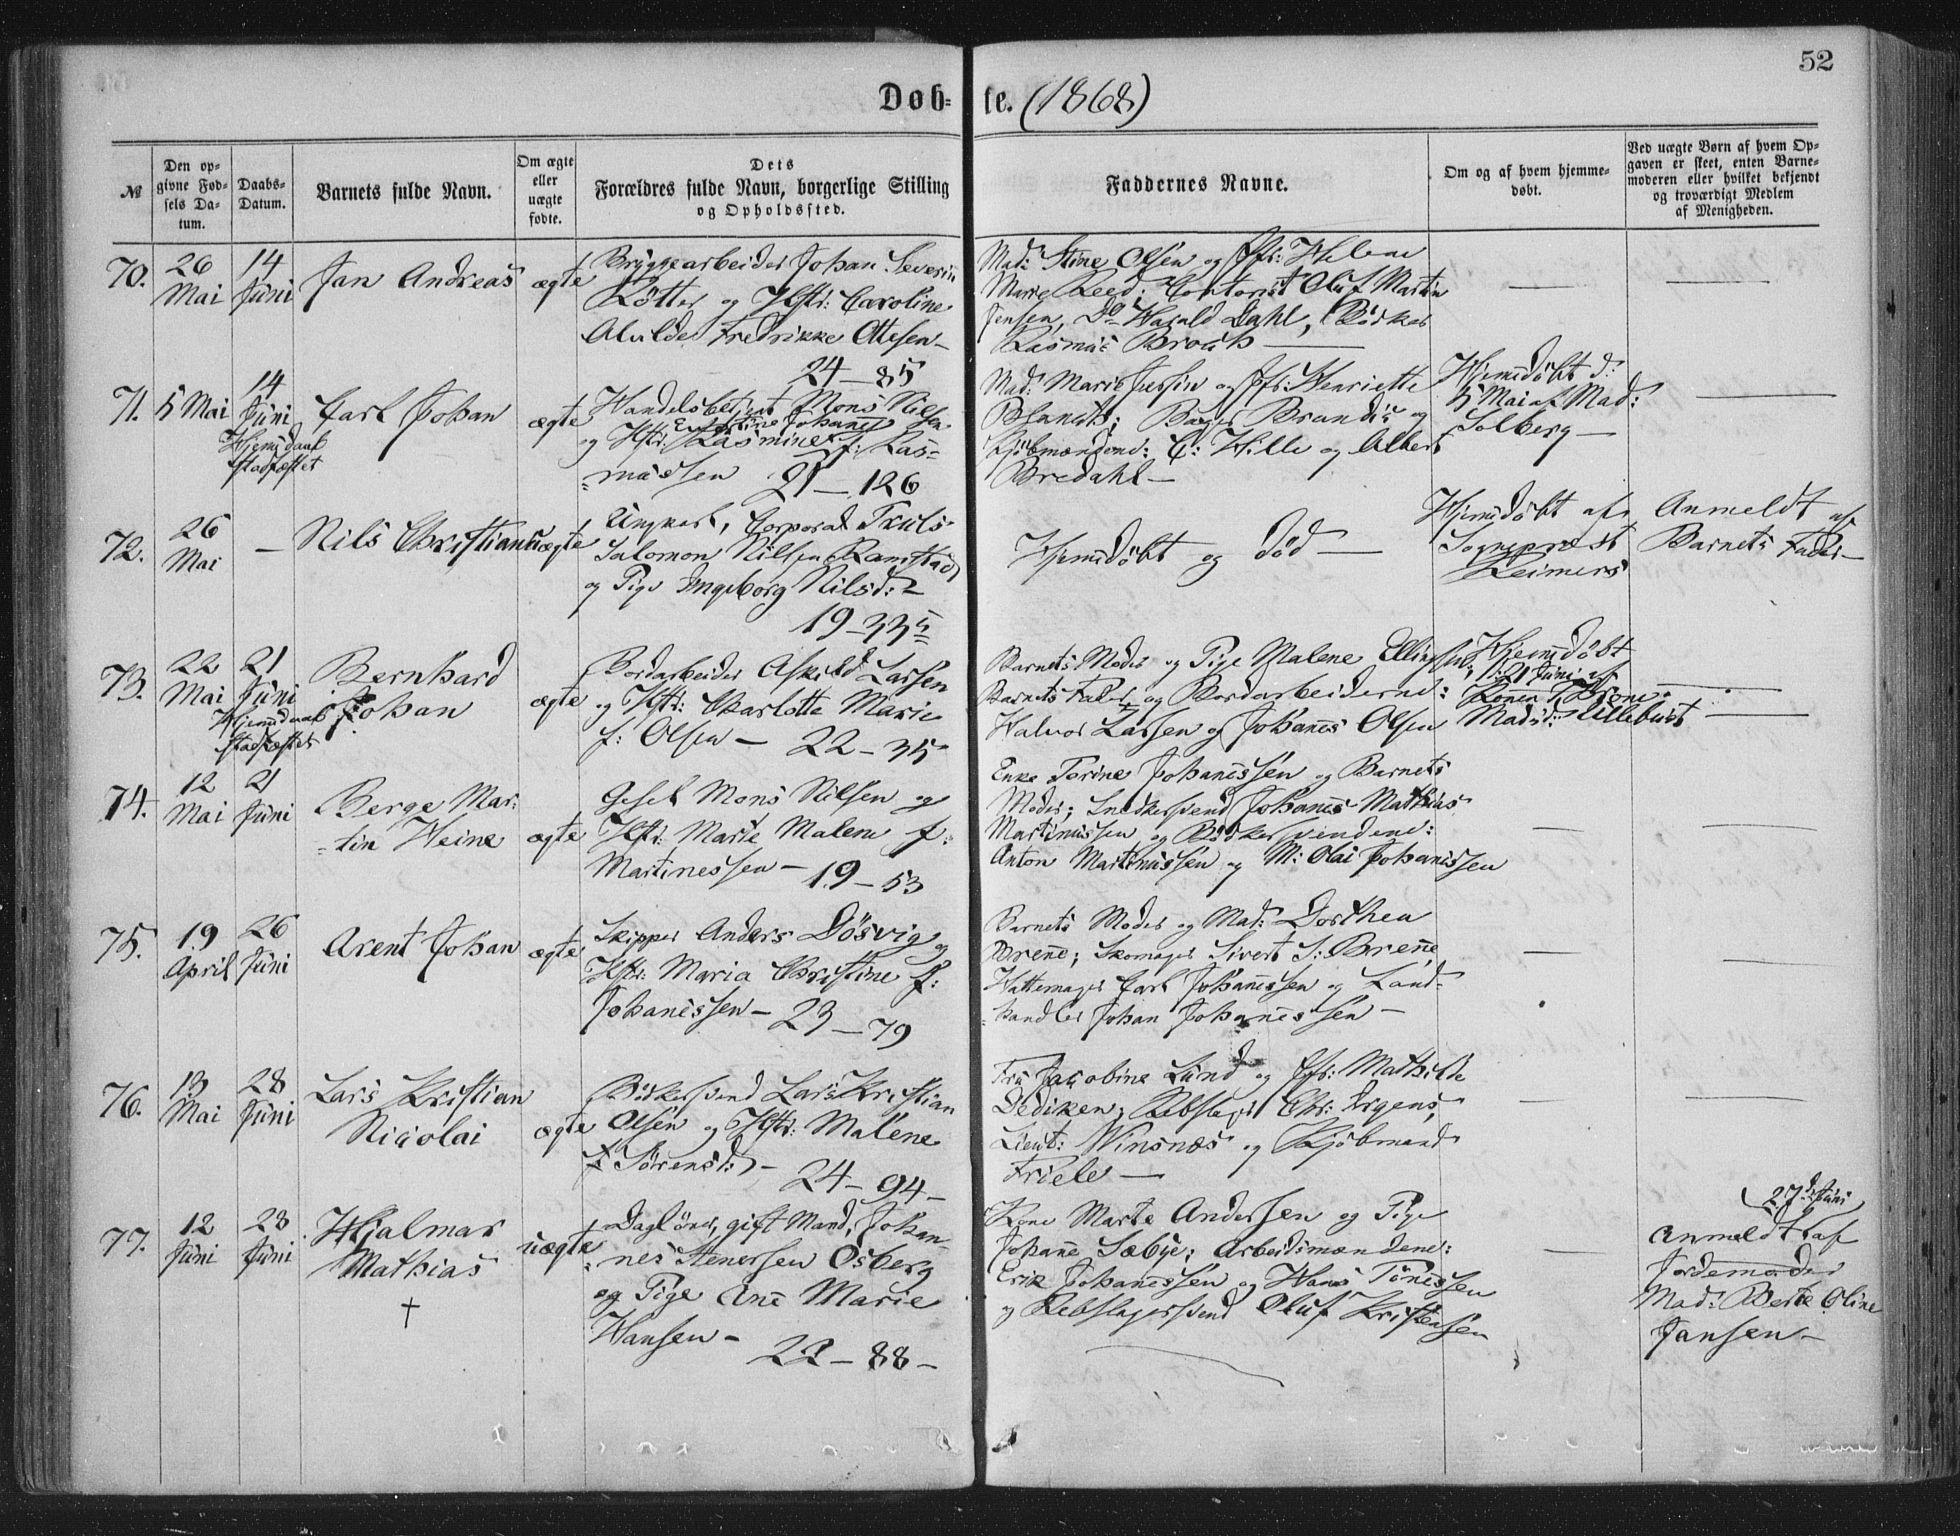 52
Døb- te. (1868)
№
Den op-
givne Fød-
sels Da-
tum.
Daabs-
Datum.
Barnets fulde Navn.
Om ægte
eller
uægte
fødte.
Dets
Forældres fulde Navn, borgerlige Stilling
og Opholdssted.
Faddernes Navne.
Om og af hvem hjemme-
døbt.
Ved uægte Børn af hvem Op-
gaven er skeet, enten Barne-
moderen eller hvilket bekjendt
og troværdigt Medlem
af Menigheden.
70.
26
Mai
14
Juni
Jan Andreas
ægte
Bryggearbeider Johan Severin
Rötter og Hstr: Caroline
Alvilde Fredrikke Ottesen –
24 – 85
Mad: Stine Olsen og Jfr: Helene
Marie Reed; Contorist Oluf Martin
Jensen, Do Harald Dahl, Bödker
Rasmus Broch —
71.
5 Mai
14
Juni
Hjemedaab
stadfæstet
Carl Johan
ægte
Handelsbetjent Mons Nilsen
og Hstr: Rasmine f: Ras-
mussen 21 – 126
Mad: Marie og Jfr: Henriette
Brandt; Bager Brandt og
Kjöbmændene: C: Hille og Albert
Bredahl –
Hjemedöbt d:
5 Mai af Mad:
Solberg –
72.
26
Mai
–
Nils Christian
uægte
Ungkarl, Corporal Truls
Salomon Nilsen Ramstad
og Pige Ingeborg Nilsd: –
19 – 335
Hjemedöbt og död —
Hjemedöbt af
Sogneprest
Reimers
Anmeldt af
Barnets Fader –
73.
22
Mai
21
Juni
Hjemedaab
stadfæstet
Bernhard
Johan
ægte
Bordarbeider Askild Larsen
og Hstr: Charlotte Marie
f: Olsen – 22 – 35
Barnets Moder og Pige Malene Ellingsen;
Barnets Fader og Bordarbeiderne:
Halvor Larsen og Johanes Olsen
Hjemedöbt
d: 21 Juni af
Madsd: Lillebust
74.
12
Mai
21
Juni
Berge Mar-
tin Heine
ægte
Gesel Mons Nilsen og
Hstr: Marte Malene f:
Martinessen – 19 – 53
Enke Torine Johanessen og Barnets
Moder; Snedkersvend Johanes Mathias
Martinussen og Bödkersvendene:
Anton Martinussen og M: Olai Johanessen
75.
19
April
26
Juni
Arent Johan
ægte
Skipper Anders Dösvig og
Hstr: Maria Christine f:
Johanessen – 23 – 79
Barnets Moder og Mad: Dorthea
Brene; Skomager Sivert S: Brene,
Hattemager Carl Johanessen og Land-
handler Johan Johanessen –
76.
13
Mai
28
Juni
Lars Kristian
Nicolai
ægte
Bödkersvend Lars Kristian
Olsen og Hstr: Malene
f Sörensd: –
24 – 94 –
Fru Jacobine Lund og Jfr: Mathilde
Dediken; Rebslager Chr: Irgens,
Lieut: Winsnæs og Kjöbmand
Friele —
77.
12
Juni
28
Juni
Hjalmar
Mathias
†
uægte
Daglöner, gift Mand, Johan-
nes Stenersen Osberg
og Pige Ane Marie
Hansen –
22 – 88 –
Kone Marte Andersen og Pige
Johane Sæbye; Arbeidsmændene:
Erik Johanessen og Hans Tönesen
og Rebslagersvend Oluf Kristensen
27de Juni
Anmeldt af
Jordemoder
Mad: Berte Oline
Jansen –